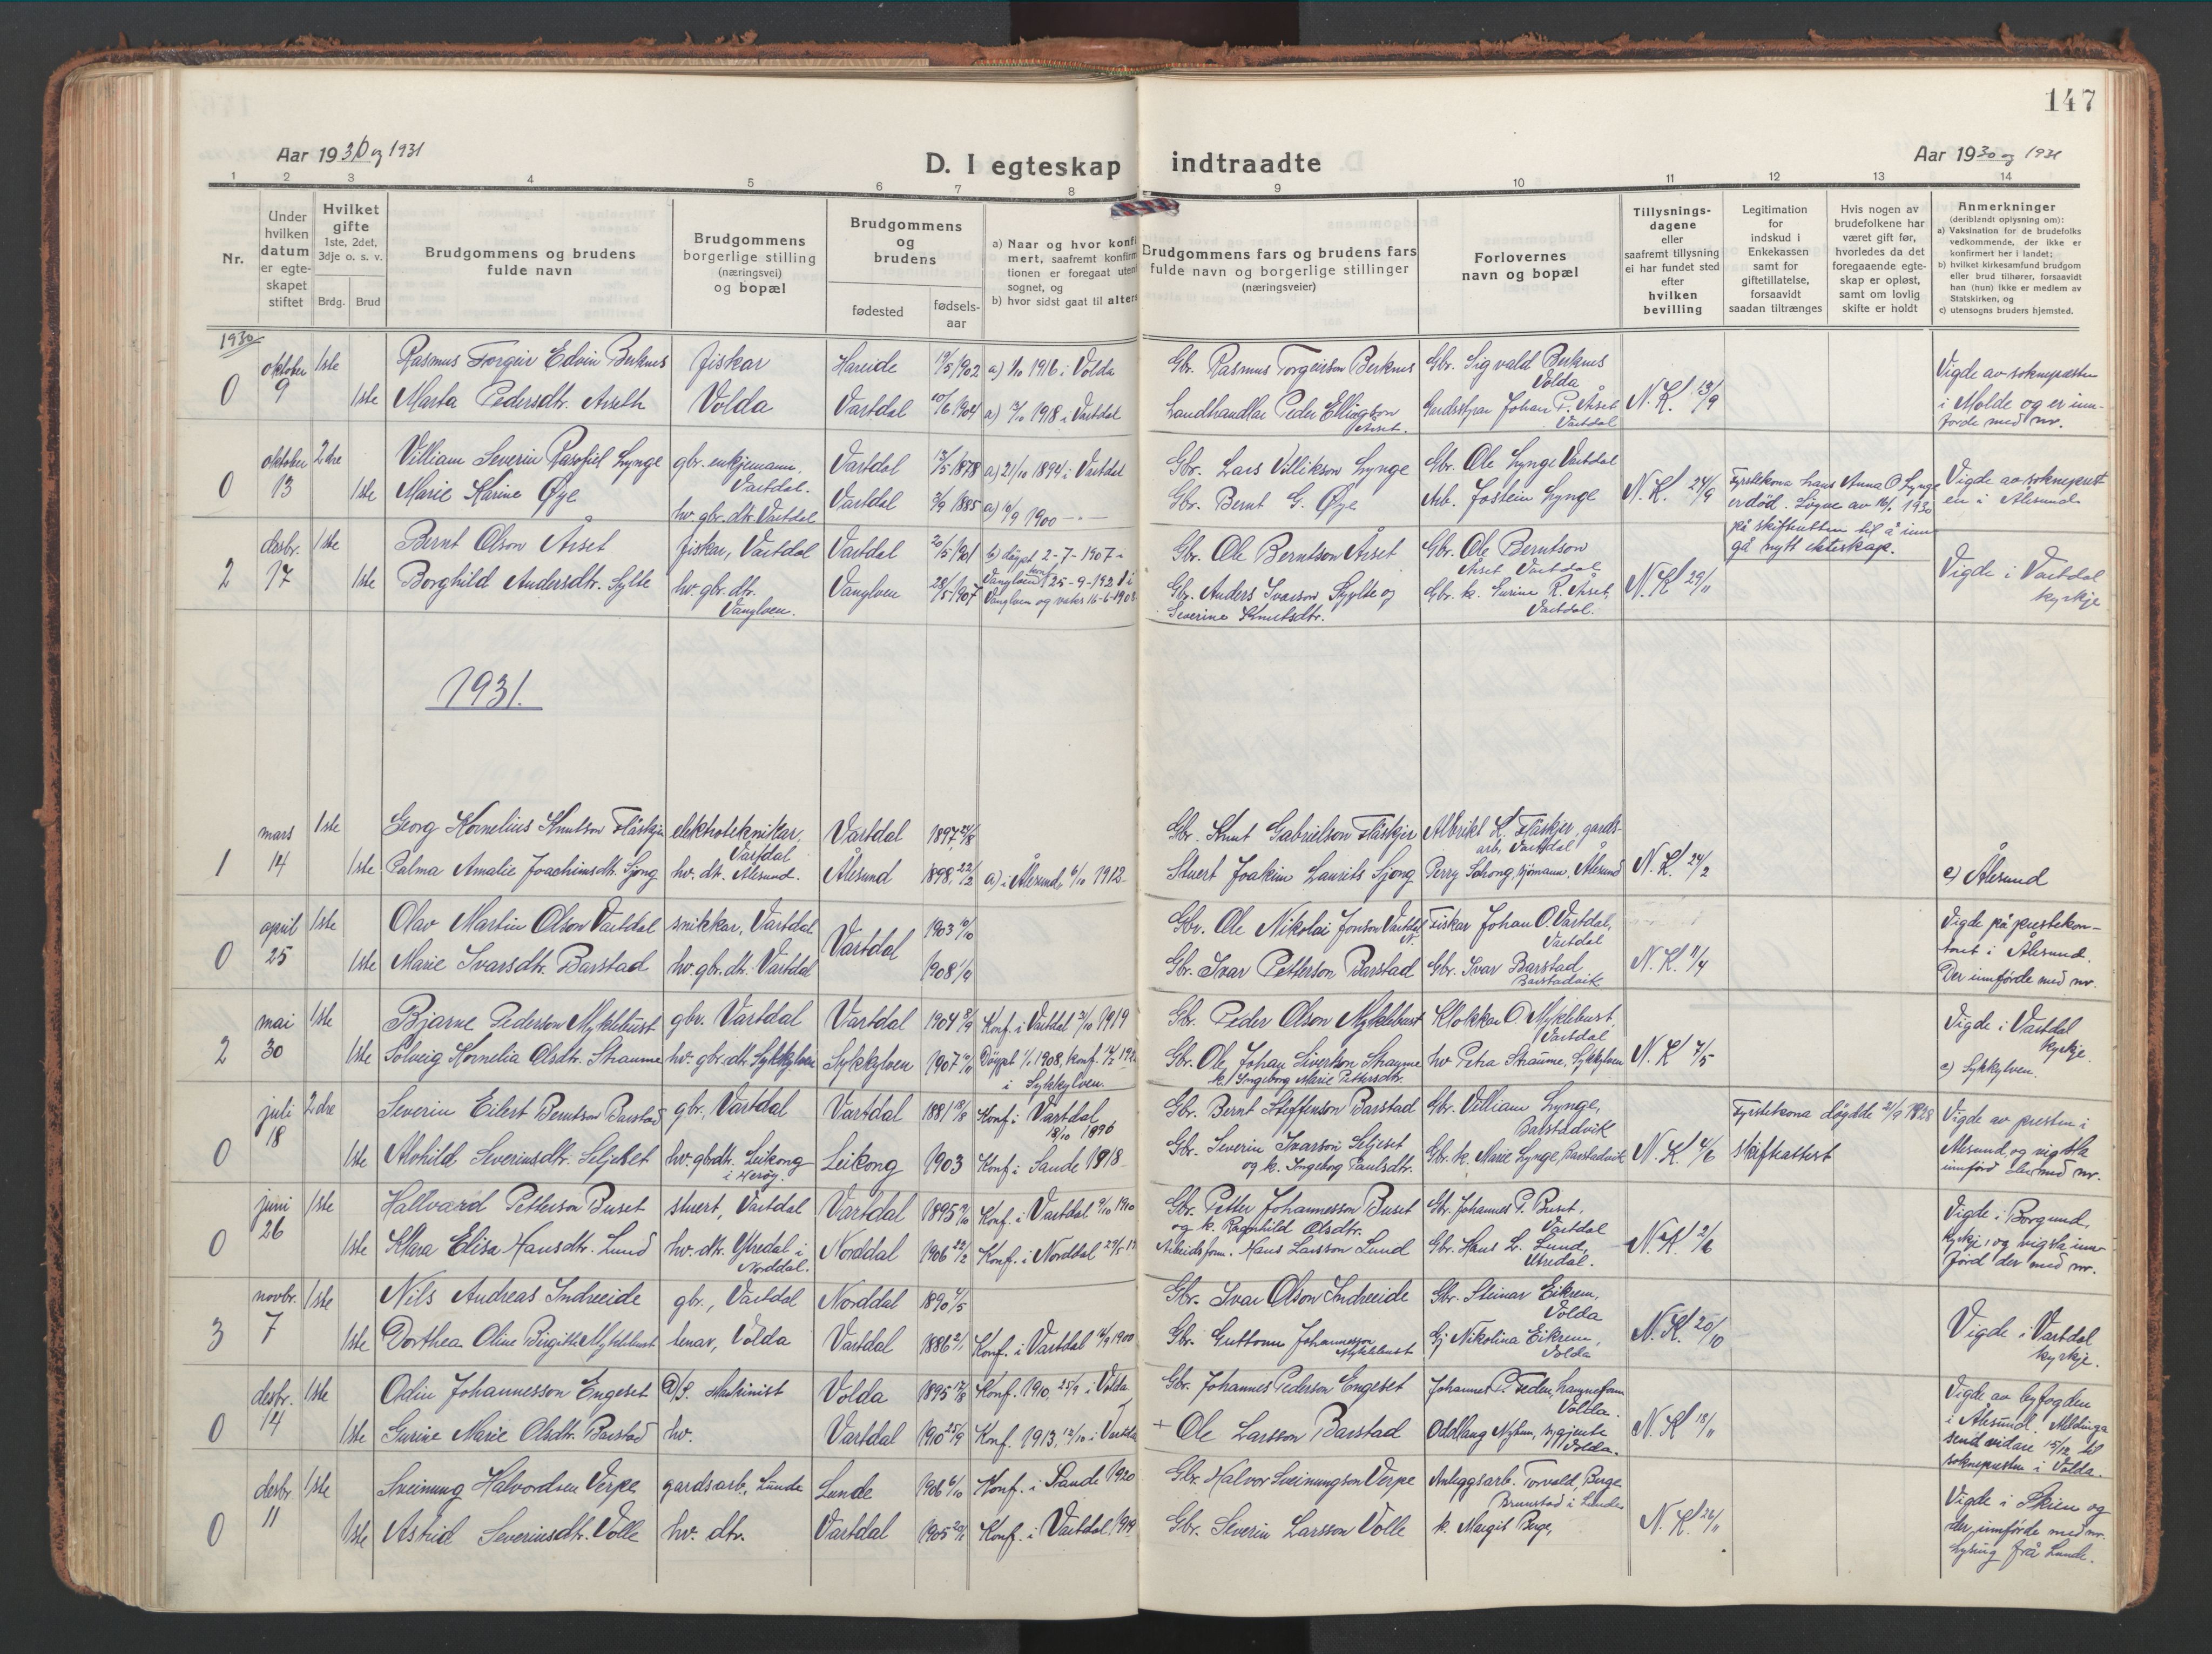 147
Aar 1930 og 1931
D. I egteskap indtraadte
Aar 1930 og 1931
1 2 3 4 5 6 7 8 9 10 11 12 13 14
Nr.
Under hvilken datum er egteskapet stiftet
Hvilket gifte 1ste, 2det, 3dje o. s. v.
Brdg. Brud
Brudgommens og brudens fulde navn
Brudgommens borgerlige stilling (næringsvei) og bopæl
Brudgommens og brudens
fødested
fødsels-aar
a) Naar og hvor konfirmert, saafremt konfirmationen er foregaat utensognet, og
b) hvor sidst gaat til alters
Brudgommens fars og brudens fars fulde navn og borgerlige stillinger (næringsveier)
Forlovernes navn og bopæl
Tillysningsdagene eller saafremt tillysning ei har fundet sted efter hvilken bevilling
Legitimation for indskud i Enkekassen samt for giftetillatelse, forsaavidt saadan tiltrænges
Hvis nogen av brudefolkene har været gift før, hvorledes da det foregaaende egteskap er opløst, samt om lovlig skifte er holdt
Anmerkninger
(deriblandt oplysning om):
a) Vaksination for de brudefolks vedkommende, der ikke er konfirmert her i landet;
b) hvilket kirkesamfund brudgom eller brud tilhører, forsaavidt han (hun) ikke er medlem av Statskirken, og
c) utensogns bruders hjemsted.
1930
0 oktober 9 1ste Rasmus Torgeir Edvin Berknes fiskar Hareide 19/5 1902 a) 1/10 1916 i Volda Gbr. Rasmus Torgeirson Berknes Gbr. Sigvald Berknes Volda
1ste Marta Pedersdtr. Aarseth Volda Vartdal 10/6 1904 a) 1918 i Vartdal Landhandlar Peder Ellingson Aarset. Gardsstyrar Johan P. Årset Vartdal N. K. 13/9
Vigde av soknepresten i Molde og er innførde med nr.
0 oktober 13 2dre Villiam Severin Rasofiel Lynge gbr. enkjemann. Vartdal. Vartdal 13/5 1878 a) 21/10 1894 i Vartdal Gbr. Lars Villikson Lynge Gbr. Ole Lynge Vartdal
1ste Marie Karine Øye hv. gbr. dtr. Vartdal Vartdal 3/9 1885 a) 16/9 1900 Gbr. Bernt G. Øye Arb. Jostein Lynge N. K. 24/9
Fyrstekona hans Anna O. Lynge er død. Løyve av 16/1 1930 på skifteretten til å inngå nytt ekteskap.
Vigde av soknepresten i Ålesund
2 desbr. 17 1ste Bernt Olson Årset fiskar, Vartdal Vartdal 20/5 1901 b) døypt 2-7-1907 Gbr. Ole Berntson Årset Gbr. Ole Berntson Årset Vartdal
1ste Borghild Andersdtr. Sylte hv. gbr. dtr. Vanylven. Vanylven 28/5 1907 Vanylven konf. 25-9-1921 i Vanylven og vaks 16-6-1908 Gbr. Anders Ivarson Sylte og Severine Knutsdtr. Gbr. k. Surine R. Årset, Vartdal. N. K. 29/11
Vigde i Vartdal kyrkje
1931.
1 mars 14 1ste Georg Kornelius Knutson Flåskjer elektroteknikar, Vartdal Vartdal 1897 24/8 Gbr. Knut Gabrielson Flåskjer Albrikt K. Flåskjer, gardsarb. Vartdal
1ste Palma Amalie Joachimsdtr. Sjong hv. dt. Ålesund. Ålesund 1898, 22/2 a) i Ålesund 6/10 1912 Stuert Joakim Laurits Sjong Perry Schong, sjømann, Ålesund N. K. 24/2
c) Ålesund
0 april 25 1ste Olav Martin Olson Vartdal snikkar, Vartdal Vartdal 1903 10/10 Gbr. Ole Nikolai Jonson Vartdal Fiskar Johan O. Vartdal, Vartdal
1ste Marie Ivarsdtr. Barstad hv. gbr. dtr. Vartdal 1908 1/9 Gbr. Ivar Petterson Barstad Gbr. Ivar Barstad Barstadvik N. K. 11/4
Vigde på prestekontoret i Ålesund. Der innførde med nr.
2 mai 30 1ste Bjarne Pederson Myklebust gbr. Vartdal Vartdal 1904 8/9 Konf. i Vartdal 3/10 1919 Gbr. Peder Olson Myklebust Klokkar O. Myklebust, Vartdal
1ste Solveig Kornelia Olsdtr. Straume hv. gbr. dtr. Sykkylven Sykkylven 1907 Døypt 1/1 1908, konf. i Sykkylven. Gbr. Ole Johan Sivertson Straume k. Ingeborg Marie Pettersdtr. hv Petra Straume, Sykkylven N. K. 7/5
Vigde i Vartdal kyrkje. c) Sykkylven.
0 juli 18 2dre Severin Eilert Berntson Barstad gbr., Vartdal Vartdal 1881 18/8 Konf. i Vartdal 18/10 1896 Gbr. Bernt Steffenson Barstad Gbr. Villiam Lynge, Barstadvik
1ste Alvhild Severinsdtr. Seljeset hv. gbrdtr. Leikong i Herøy. Leikong 1903 Konf. i Sande 1918 Gbr. Severin Ivarson Seljeset og k. Ingeborg Paulsdtr. Gbr. k. Marie Lynge, Barstadvik N. K. 4/6
Fyrstekona døydde 2/9 1928 skifteattest
Vigde av presten i Ålesund og vigsla innførd der med nr.
0 juni 26 1ste Hallvard Petterson Buset stuert, Vartdal Vartdal 1895 Konf. i Vartdal 9/10 1910 Gbr. Petter Johannesson Buset og k. Ragnhild Olsdtr. Gbr. Johannes P. Buset, Vartdal
1ste Klara Elise Hansdtr. Lund hv. dtr. Ytredal i Norddal. Norddal 1906 22/2 Konf. i Norddal Arbeidsform. Hans Larsson Lund Gbr. Hans L. Lund, Utredal. N. K. 2/6
Vigde i Borgund kyrkje, og vigsla innførd der med nr.
3 novbr. 7 1ste Nils Andreas Indreeide gbr., Vartdal Norddal 1890 4/5 Gbr. Ivar Olson Indreeide Gbr. Steinar Eikrem, Volda
1ste Dorthea Oline Birgitte Myklebust lenar, Volda Vartdal 1886 Konf. i Vartdal 1900 Gbr. Guttorm Johannesson Myklebust Gj Nikolina Eikrem, Volda N. K. 20/10
Vigde i Vartdal kyrkje.
0 desbr. 14 1ste Odin Johannesson Engeset Maskinist Volda 1895 17/8 Konf. 1910, 25/9 i Volda Gbr. Johannes Pederson Engeset Johannes P. Feden, hamnefom Volda.
1ste Gurine Marie Olsdtr. Barstad hv. Vartdal 1910 25/9 Konf. 1913, 12/10 i + Ole Larsson Barstad Oddlaug Volda. N. K. 18/11
Vigde av byfogden i Ålesund. Meldinga send vidare 15/12 til soknepresten i Volda.
0 desbr 11 1ste Sveinung Halvordsen Verpe gardsarb., Lunde Lunde 1906 6/10 Konf. i Lunde 1920 Gbr. Halvor Sveinungson Verpe Anleggsarb. Torvald Berge Brunstad i Lunde
1ste Astrid Severinsdtr. Volle hv. dtr. Vartdal 1905 Konf. i Vartdal 1919. Gbr. Severin Larsson Volle k. Margit Berge, N. K. 26/11
Vigde i Skien og der innførde med nr. Lysing frå Lunde.